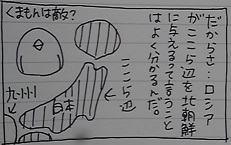 くまもんは敵?
だからさ…ロシア
がここら辺を北朝鮮
に与えるって言うこと
はよく分かるんだ。
ここら辺
九州
日本